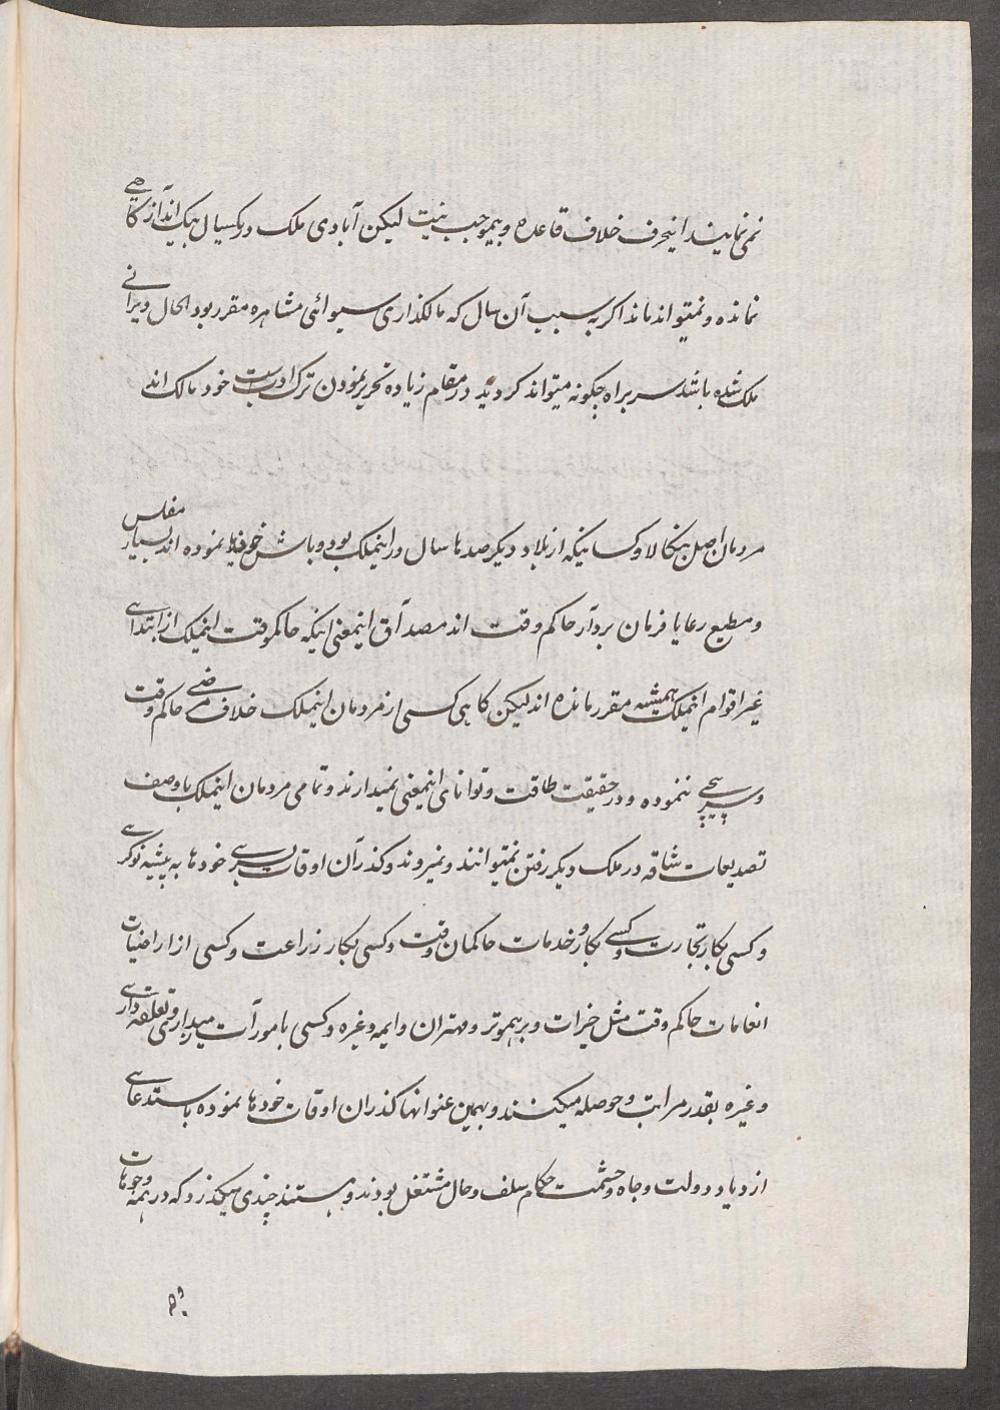 نمی نمایند اینحرف خلاف قاعده و بیموجب نیست لیکن آبادی ملک در یکسال بیک انداز کاهی
نمانده و نمیتواند ماند اگر به سبب آن سال که مالگذاری سیوائی مشاهره مقرر بود الحال ویرانی
ملک شده باشد سربراه چگونه میتواند گردید در مقام زیاده تحریر نمودن ترک ادبست خود مالک اند
مردمان اصل بنکالا و کسانیکه از بلاد دیگر صدها سال در اینملک بود و باش خودها نموده اند بسیار مفلس
و مطیع رعایا فرمان بردار حاکم وقت اند مصداق اینمعنی اینکه حاکم وقت اینملک از ابتدای
غیر اقوام اینملک همیشه مقرر مانده اند لیکن کاهی کسی از مردمان اینملک خلاف مرضی حاکم وقت
و سرپیچی ننموده و در حقیقت طاقت و توانای اینمعنی نمیدارند و تمامی مردمان اینملک باوصف
تصدیعات شاقه در ملک دیگر رفتن نمیتوانند و نمیروند و گذران اوقات بسری خودها به پیشیه نوکری
و کسی بکار تجارت و کسی بکار و خدمات حاکمان وقت و کسی بکار زراعت و کسی از اراضیات
انعامات حاکم وقت مثل خیرات و برهموتر و مهتران و ایمه و غیره و کسی بامورات میدارند و تعلقه داری
و غیره بقدر مراتب و حوصله میکنند و بهمین عنوانها گذران اوقات خودها نموده باستدعای
ازدیاد دولت و جاه و حشمت حکام سلف و حال مشتغل بودند و هستند چندی میگذرد که در همه وجوهات